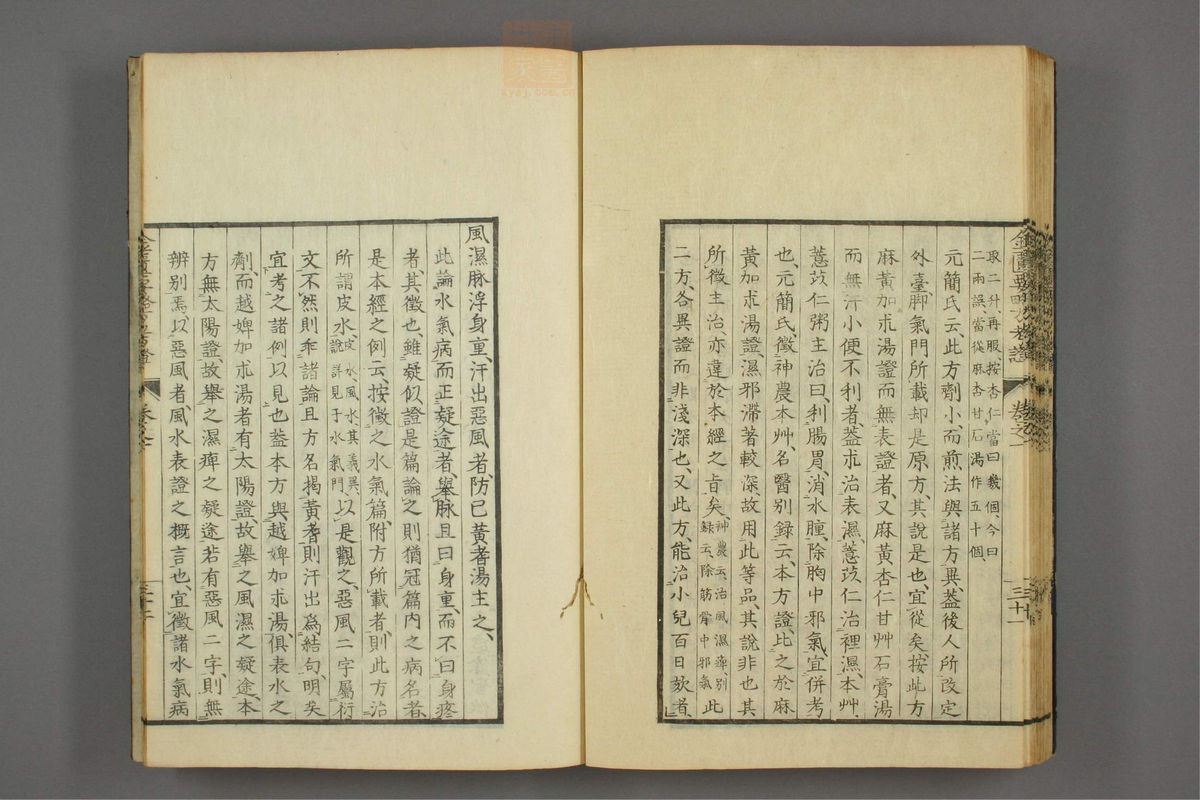 取二升、再服、按杏仁、當曰幾個、今曰
二兩誤當從麻杏甘石湯作五十個、
元簡氏云、此方劑小、而煎法與諸方異、蓋後人所改定
外臺脚氣門所載却是原方、其說是也、宜從矣、按此方
麻黃加朮湯證而無表證者、又麻黃杏仁甘艸石膏湯
而無汗小便不利者、葢朮治表濕、薏苡仁治裡濕、本艸、
薏苡仁粥主治曰、利腸胃、消水腫、除胸中邪氣、宜併考
也、元簡氏、徵神農本艸、名醫別録云、本方證、比之於麻
黃加朮湯證、濕邪滯著較深、故用此等品、其說非也、其
所徵主治、亦違於本經之旨矣、神農云、治風濕痺、別
録云、除筋骨中邪氣、此
二方、各異證而非淺深也、又此方、能治小兒百日欬者、
風濕脉浮身重、汗出惡風者、防已黃耆湯主之、
此論水氣病而正疑途者、舉脉且曰身重、而不曰身疼
者、其徵也、雖疑似證是篇論之則猶冠篇内之病名者、
是本經之例云、按徵之水氣篇、附方所載者、則此方治
所謂皮水、皮水風水、其義異、
說詳見于水氣門、以是觀之、惡風二字屬衍
文、不然則乖諸論且方名揭黃耆則汗出為結句、明矣
宜考之諸例以見也葢本方與越婢加朮湯、俱表水之
劑而越婢加朮湯者有太陽證、故舉之風濕之疑途、本
方無太陽證、故舉之濕痺之疑途若有惡風二字、則無
辨別焉、以惡風者、風水表證之概言也、宜徵諸水氣病
卷之一
三十一